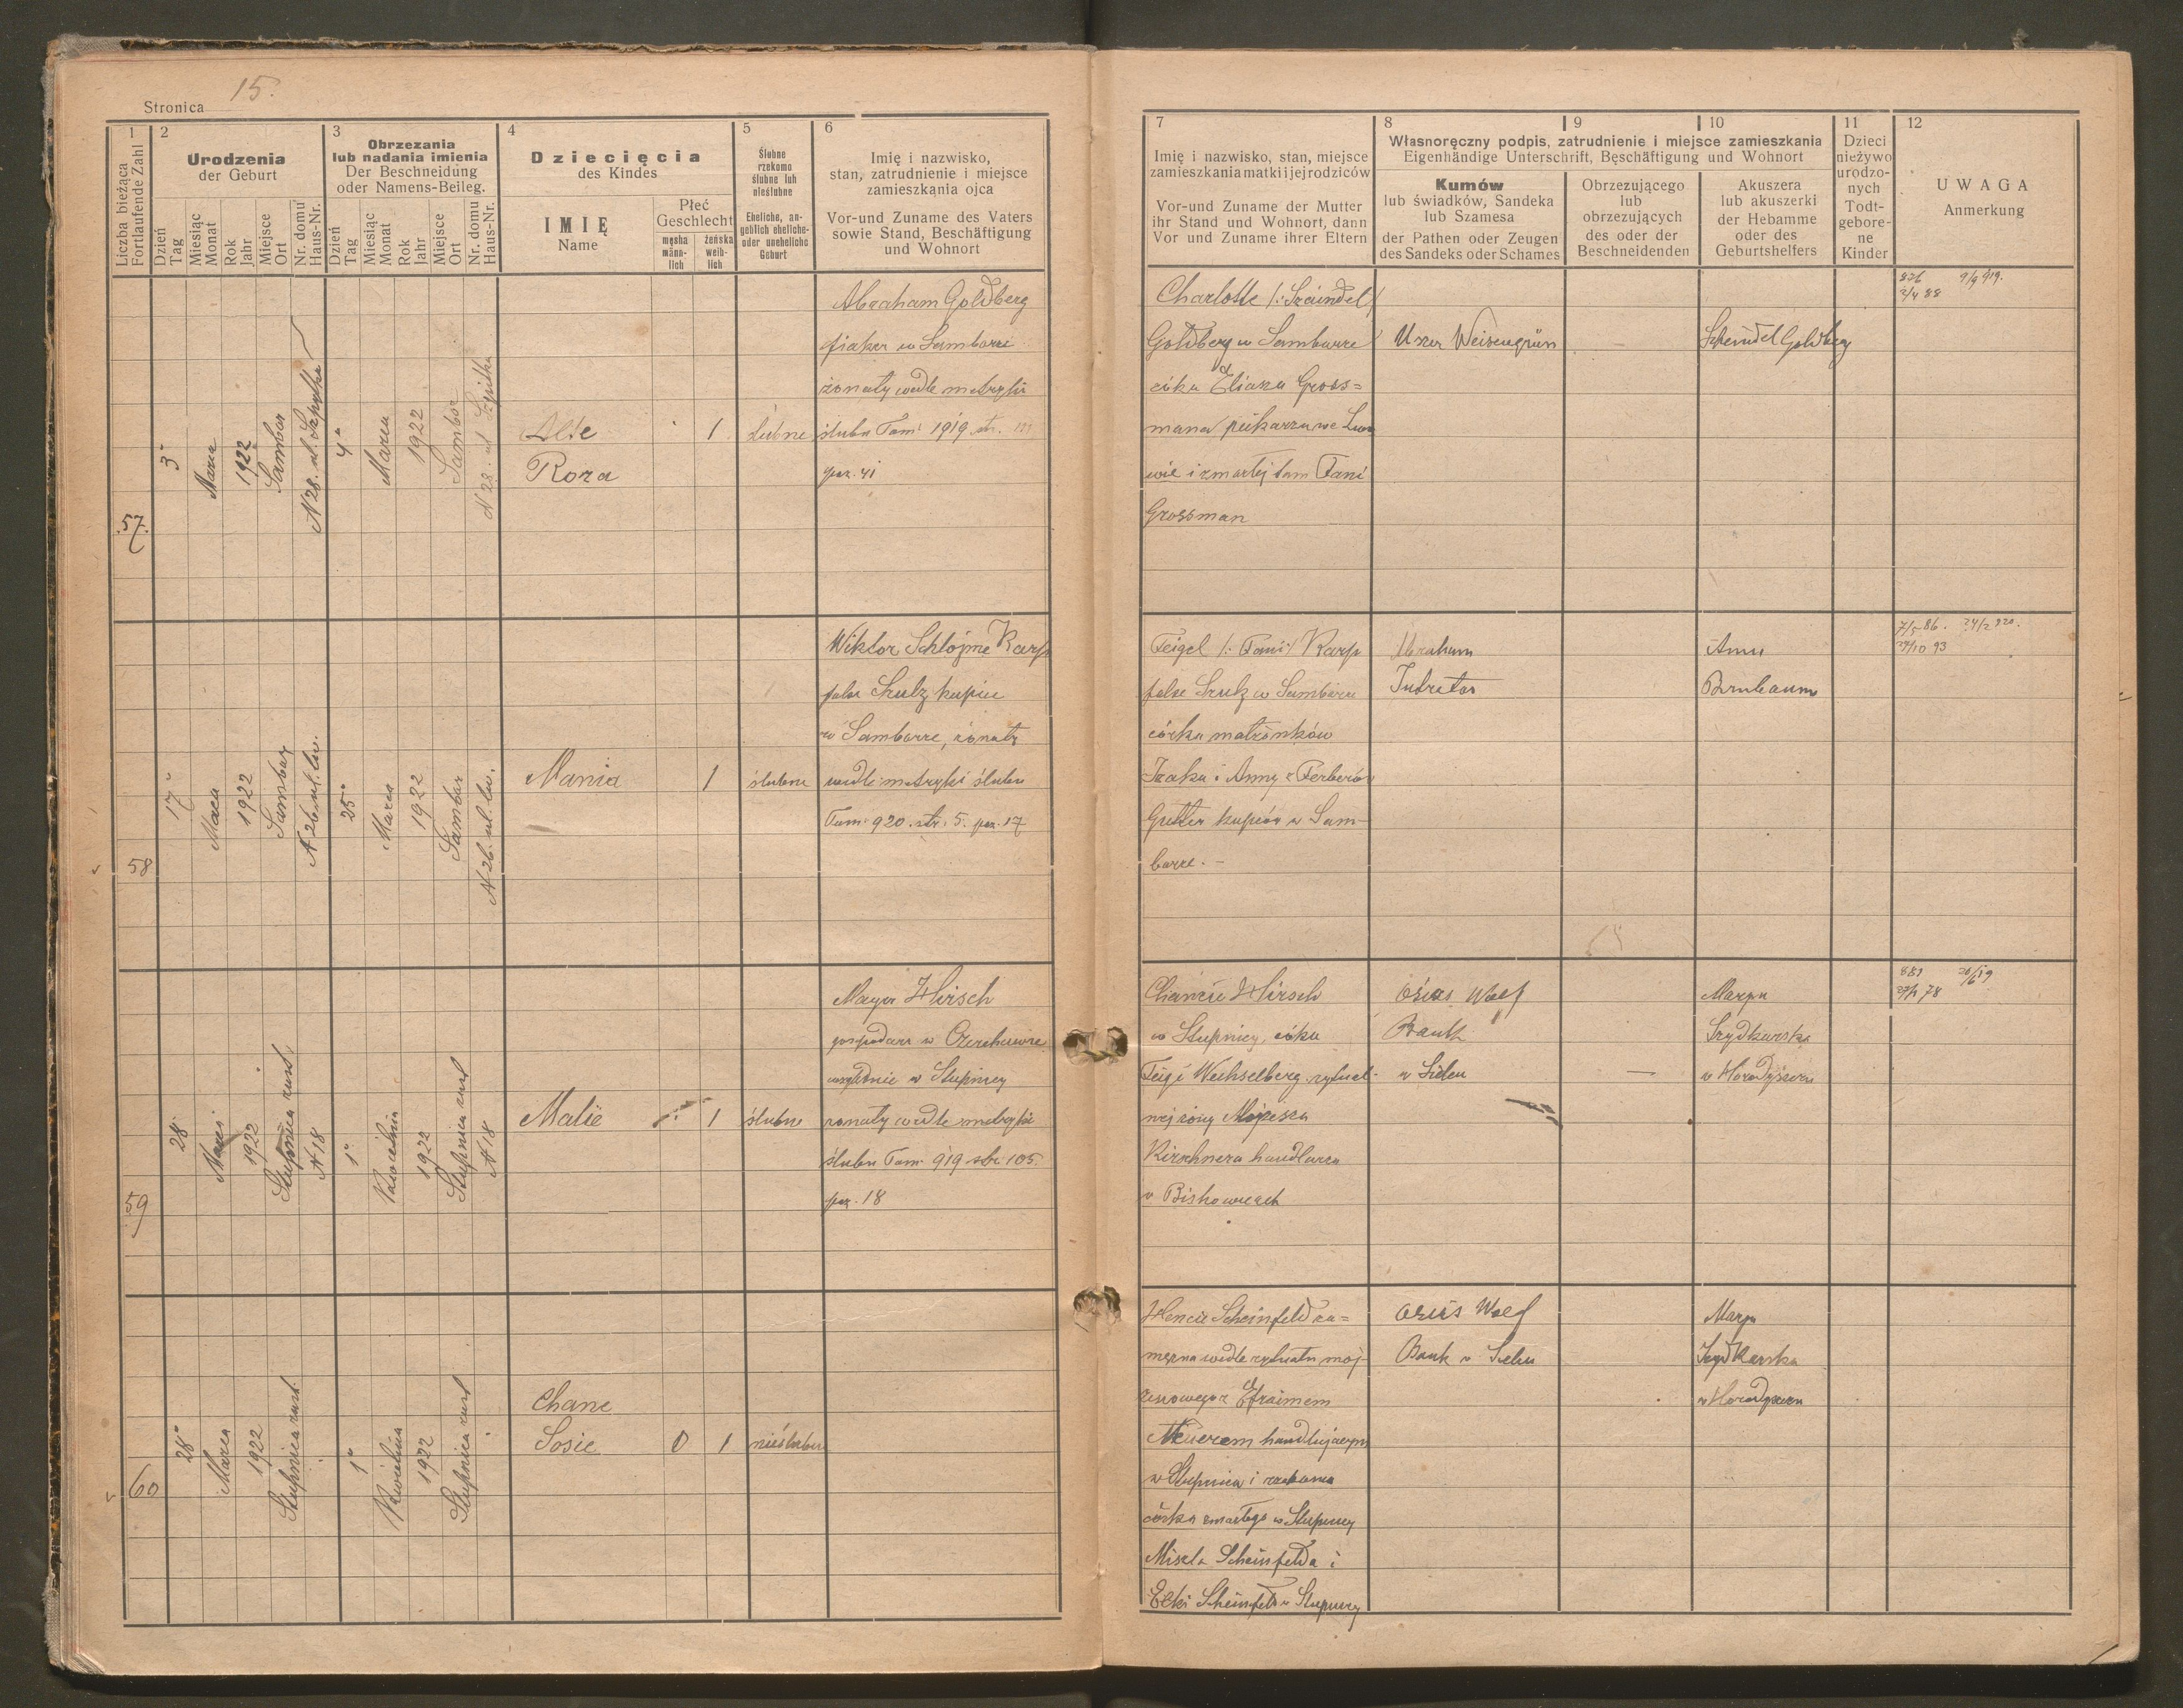 Stronica 15.
1
Liczba bieżąca
Fortlaufende Zahl
2
Urodzenia
der Geburt
Dzień
Tag
Miesiąc
Monat
Rok
Jahr
Miejsce
Ort
Nr. domu
Haus-Nr.
3
Obrzezania
lub nadania imienia
Der Beschneidung
oder Namens-Beileg.
Dzień
Tag
Miesiąc
Monat
Rok
Jahr
Miejsce
Ort
Nr. domu
Haus-Nr.
4
Dziecięcia
des Kindes
IMIĘ
Name
Płeć
Geschlecht
męska
männ-
lich
żeńska
weib-
lich
5
Ślubne
rzekomo
ślubne lub
nieślubne
Eheliche, an-
geblich eheliche
oder uneheliche
Geburt
6
Imię i nazwisko,
stan, zatrudnienie i miejsce
zamieszkania ojca
Vor-und Zuname des Vaters
sowie Stand, Beschäftigung
und Wohnort
7
Imię i nazwisko, stan, miejsce
zamieszkania matki i jej rodziców
Vor-und Zuname der Mutter
ihr Stand und Wohnort, dann
Vor und Zuname ihrer Eltern
8
9
10
Własnoręczny podpis, zatrudnienie i miejsce zamieszkania
Eigenhändige Unterschrift, Beschäftigung und Wohnort
Kumów
lub świadków, Sandeka
lub Szamesa
der Pathen oder Zeugen
des Sandeks oder Schames
Obrzezującego
lub
obrzezujących
des oder der
Beschneidenden
Akuszera
lub akuszerki
der Hebamme
oder des
Geburtshelfers
11
Dzieci
nieżywo
urodzo-
nych
Todt-
gebore-
ne
Kinder
12
UWAGA
Anmerkung
57.
3
Marca
1922
Sambor
N 28. ul.
4
Marca
1922
Sambor
N 28. ul
Alte
Roza
1
ślubne
Abraham Goldberg
fiaker w Samborze
żonaty wedle metryki
ślubu Tom 1919 str.
poz. 41
Charlotte /: Szeindel /
Goldberg w Samborze
córka Eliasza Gross=
mana piekarza we Lwo
wie i zmarłej tam Fani
Grossman
Uszer Weisengrün
Scheindel Goldberg
9/9 919.
2/4 88
58
17
Marca
1922
Sambor
N 26
25
Marca
1922
Sambor
N 26
Mania
1
ślubne
Wiktor Schlojme Karp
false Szulz kupiec
w Samborze, żonaty
wedle metryki ślubu
Tom 920. str. 5. poz. 17
Feigel /: Fani :/ Karp
false Szulz w Samborze
córka małżonków
Izaka i Anny z Ferberów
kupców w Sam-
borze. -
Abraham
Anna
Birnbaum
7/5 86. 24/2 920.
27/10 93
59
28
Marca
1922
Stupnica rust.
N 18
1
Kwietnia
1922
Stupnica rust
N 18
Malie
1
ślubne
Mayer Hirsch
gospodarz w
względnie w Stupnicy
żonaty wedle metryki
ślubu Tom 919 str. 105.
poz. 18
Chancie Hirsch
w Stupnicy, córka
Feigi Wechselberg rytual-
nej żony Mojżesza
Kirschnera handlarza
w Biskowicach
Ozias Wolf
Bank
w Sielcu
Marya
w Horodyszczu
881 20/6 19
27/1 78
60
28
Marca
1922
Stupnica rust.
1
Kwietnia
1922
Stupnica rust
Chane
Sosie
0 1
nieślubne
Hencie Scheinfeld za=
mężna wedle rytuału moj-
żeszowego z Efraimem
handlującym
w Stupnicy i rzekoma
córka zmarłego w Stupnicy
Scheinfelda i
Elki Scheinfeld w Stupnicy
Ozias Wolf
Bank w Sielcu
Marya
w Horodyszczu